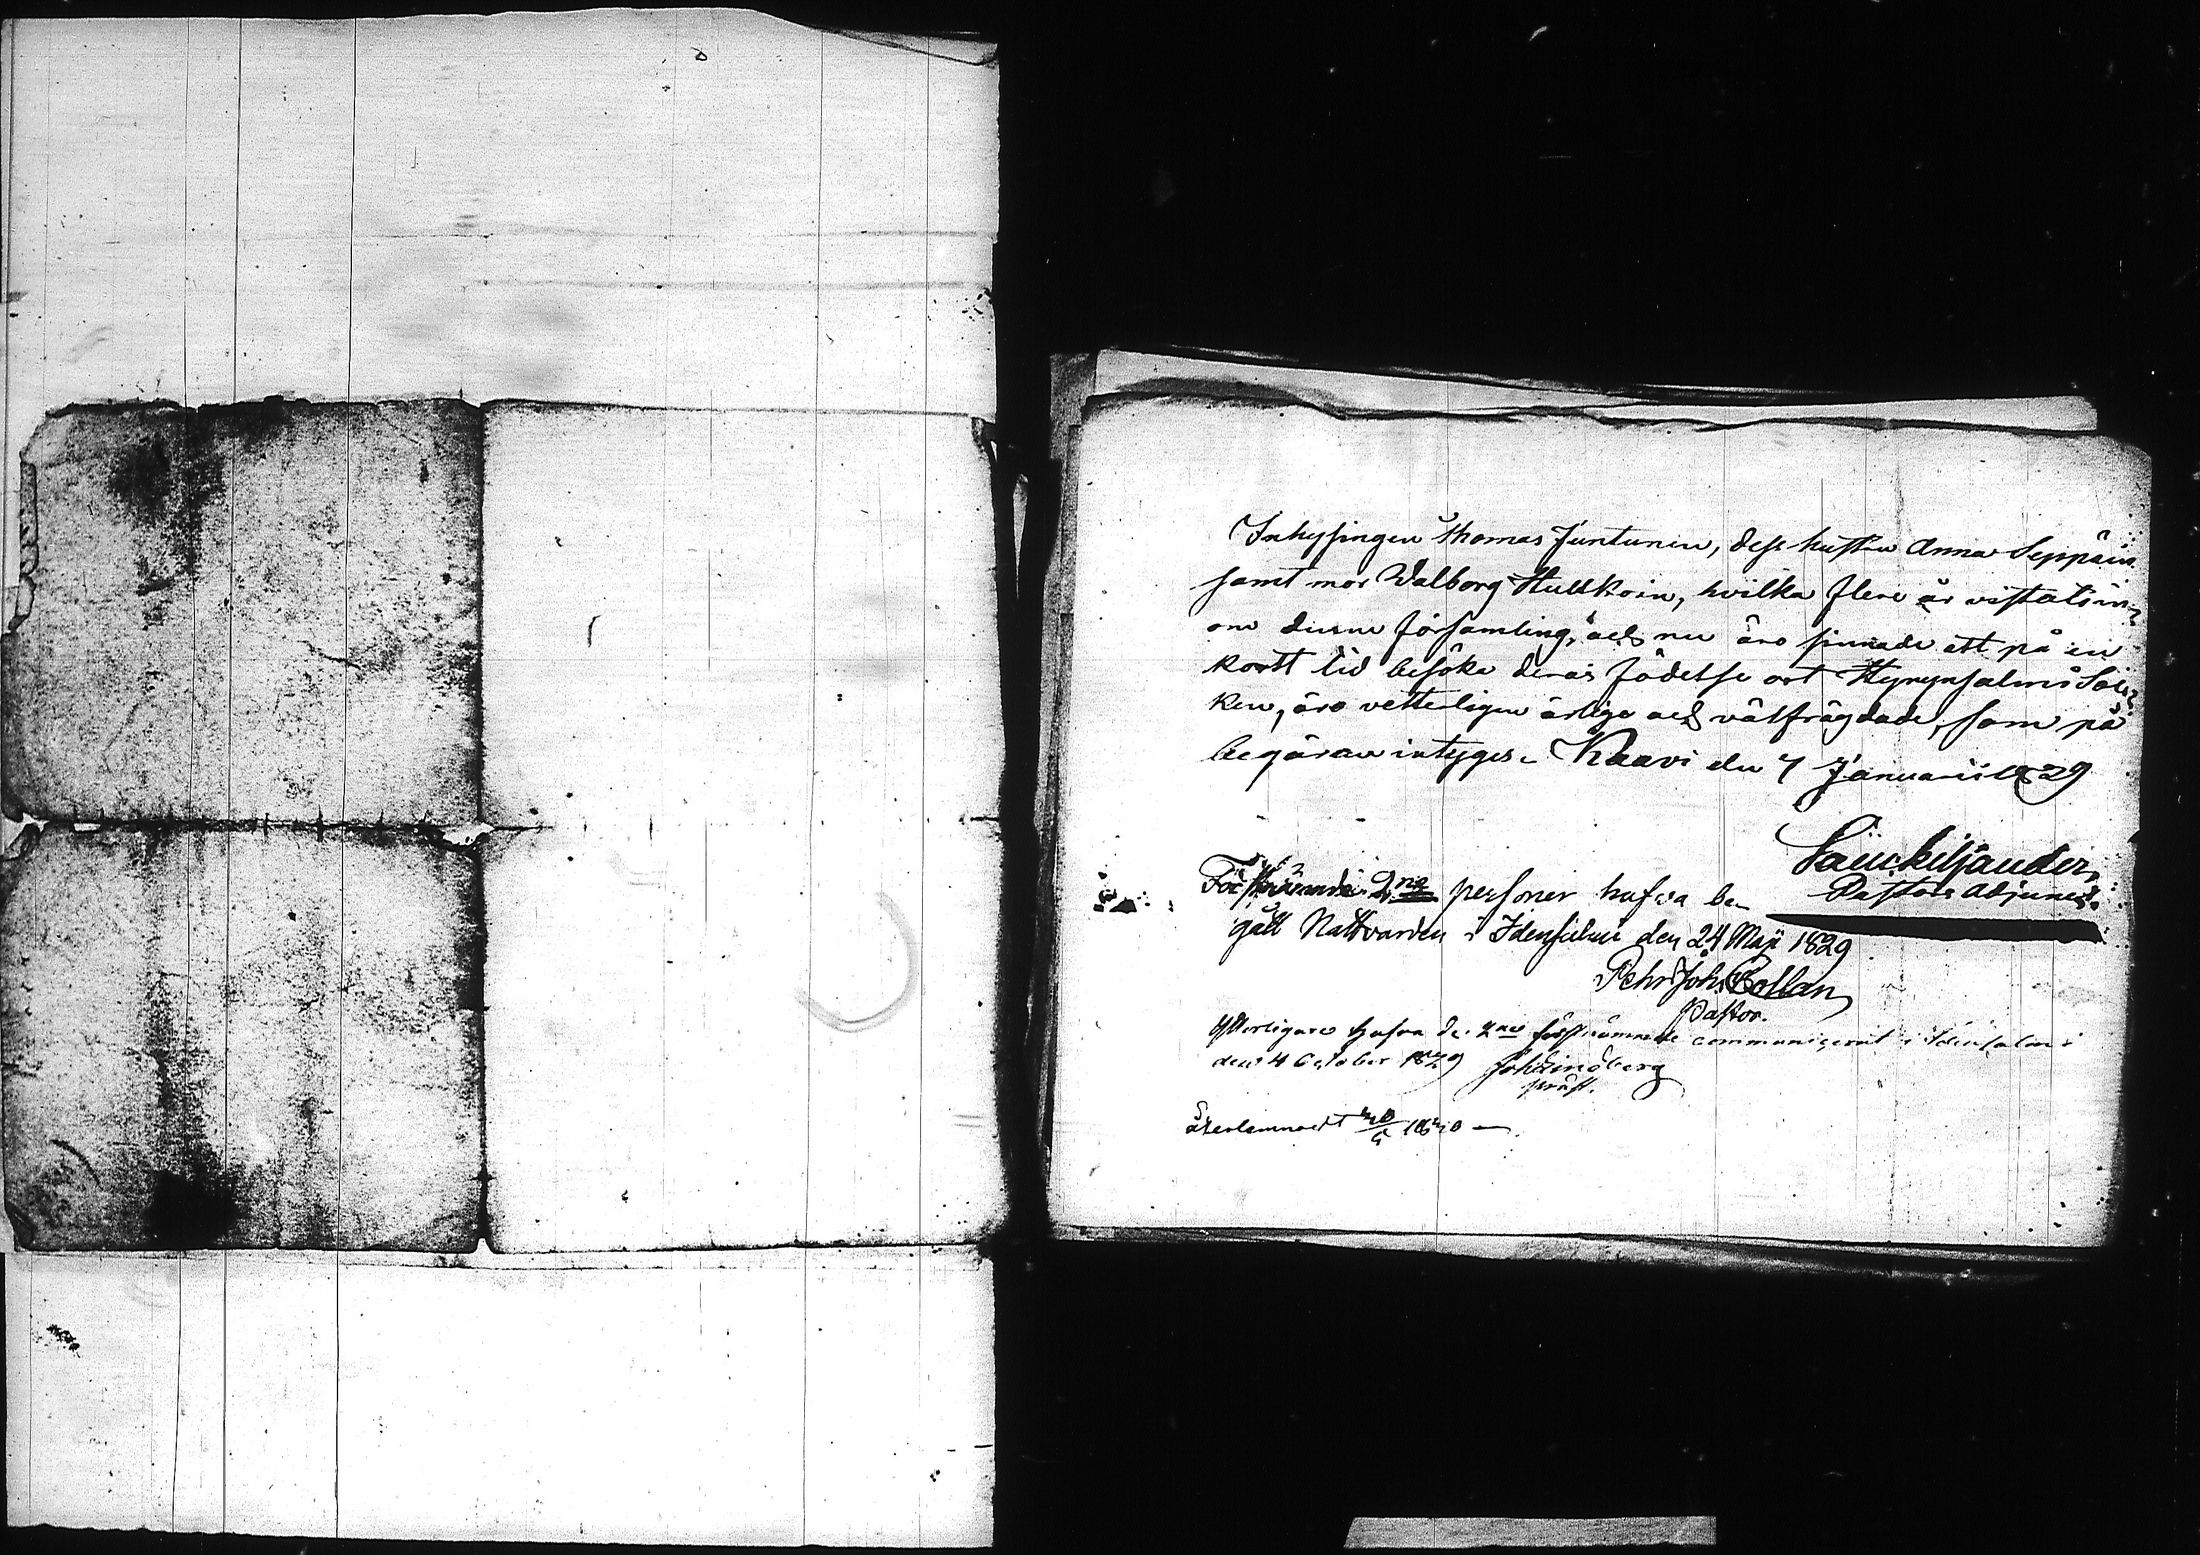 Inhysingen Thomas Juntunen, dess hustru Anna Seppäin
samt mor Walborg Hulkoin, hvilka flere år vistats in-
om denne församling, och nu äro sinnade att på en
kort tid besöka deras födelse ort Hyrynsalmi Soc-
ken, äro vetterligen ärlige och välfrägdade, som på
begäran intyges. Kaavi den 7 Januarii 1829
Pastors adjunct.
Förstnämnde 2ne personer hafva be-
gått Nattvarden i Idensalmi den 24 Maji 1829
Pehr Joh. Collan
Pastor.
Ytterligare hafva de 2ne förstnämnde communicerat i Idensalmi
den 4 October 1829 Joh Lindberg
präst.
Återlemnadt 1830 —